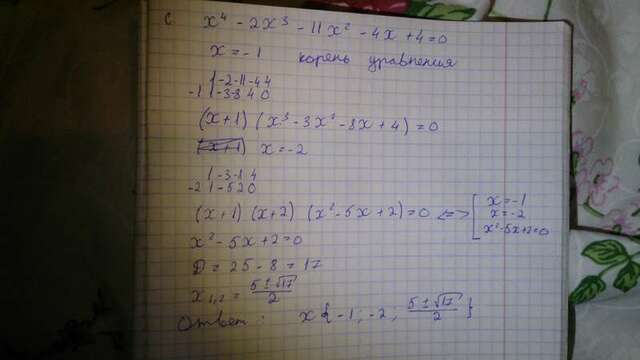 C x⁴ - 2x³ - 11x² - 4x + 4 = 0
x = -1 корень уравнения
1 -2 -11 -4 4
-1 1 -3 -8 4 0
(x+1) (x³ - 3x² - 8x + 4) = 0
(x+1) x = -2
1 -3 -8 4
-2 1 -5 2 0
(x+1) (x+2) (x² - 5x + 2) = 0 <=> [ x = -1
x = -2
x² - 5x + 2 = 0
x² - 5x + 2 = 0
D = 25 - 8 = 17
x 1,2 = 5 ± √17 / 2
Ответ: x {-1; -2; 5 ± √17 / 2}